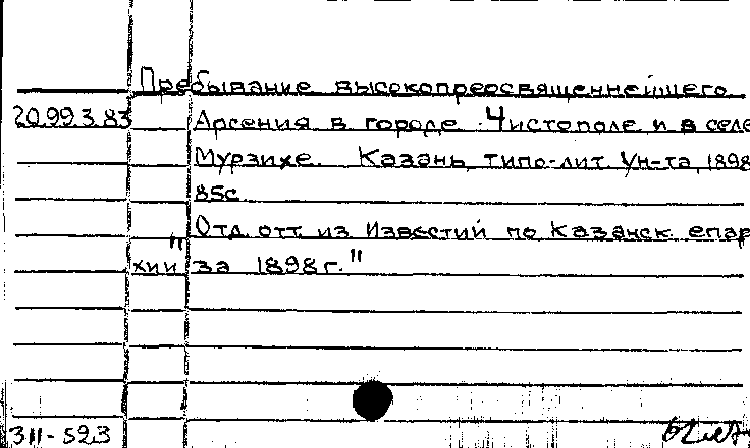 Пребывание высокопреосвященнейшего
20.99.3.83 Арсения в городе Чистополе и в селе
Мурзихе. Казань, типо-лит. Ун-та, 1898
85с.
Отд. отт. из Известий по Казанск. епар
хии" за 1898г."
311-523